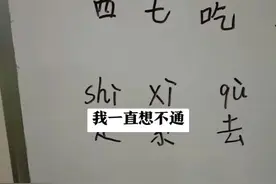 七 吃
shì xì qù
我一直想不通
去